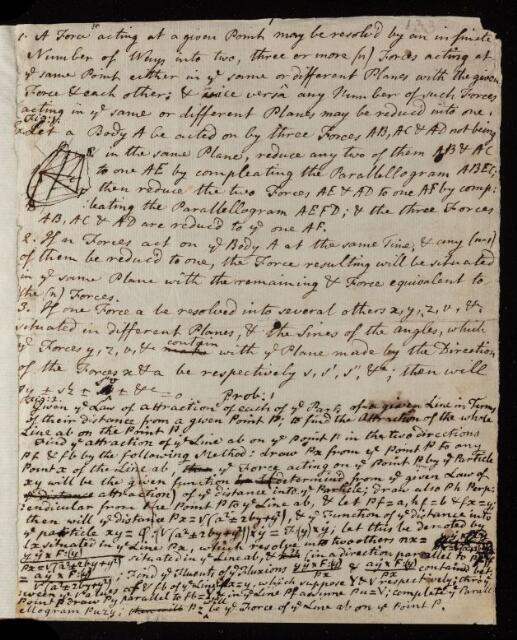 1. A Force acting at a given Point may be resolv'd by an infinite
Number of Ways into two, three or more (n) Forces acting at
ye same Point either in ye same or different Planes with the given
Force & each other; & vice versâ any Number of such Forces
acting in ye same or different Planes may be reduced into one.
Fig: 1.
Let a Body A be acted on by three Forces AB, AC & AD not being
in the same Plane, reduce any two of them AB & AC
to one AE by compleating the Parallellogram ABEC;
then reduce the two Forces AE & AD to one AF by comp:
:leating the Parallellogram AEFD; & the three Forces
AB, AC & AD are reduced to ye one AF.
2. If n Forces act on ye Body A at the same Time, & any (n-1)
of them be reduced to one, the Force resulting will be situated
in ye same Plane with the remaining & Force equivalent to
the (n) Forces.
3. If one Force a be resolved into several others x, y, z, v, &c
situated in different Planes, & the Sines of the angles, which
ye Forces y, z, v, &c contain with ye Plane made by the Direction
of the Forces x & a be respectively s, s', s'', &c; then will
sy ± s'z ± ± &c = 0
Prob: 1
Fig: 2.
Given ye Law of attraction of each of ye Parts of a given Line in Terms
of their distance from a given Point P; to find the attraction of the whole
Line ab on the Point P.
Find ye attraction of ye Line ab on ye Point P in the two directions
Pf & fb by the following Method: draw Px from ye Point P to any
Point x of the Line ab, ye Force acting on ye Point P by ye Particle
xy will be the given function determined from ye given Law of
attraction) of ye distance into ye Particle; draw also Ph Perp:
:endicular from the Point P to ye Line
then will ye distance Px = & ye Function of ye distance into
ye particle xy let this be denoted by
lx situated in ye Line Px, which resolve into two others nx =
situated in ye Line ab, & (in a direction parallel to
Find ye Fluents of ye Fluxions & contained
:tween ye Values of which suppose Y & V respectively; thro' ye
Point P draw parallel to & in ye Line Pf assume Pu = V; complete ye Parall
:ellogram be ye Force of ye Line ab on ye Point P.